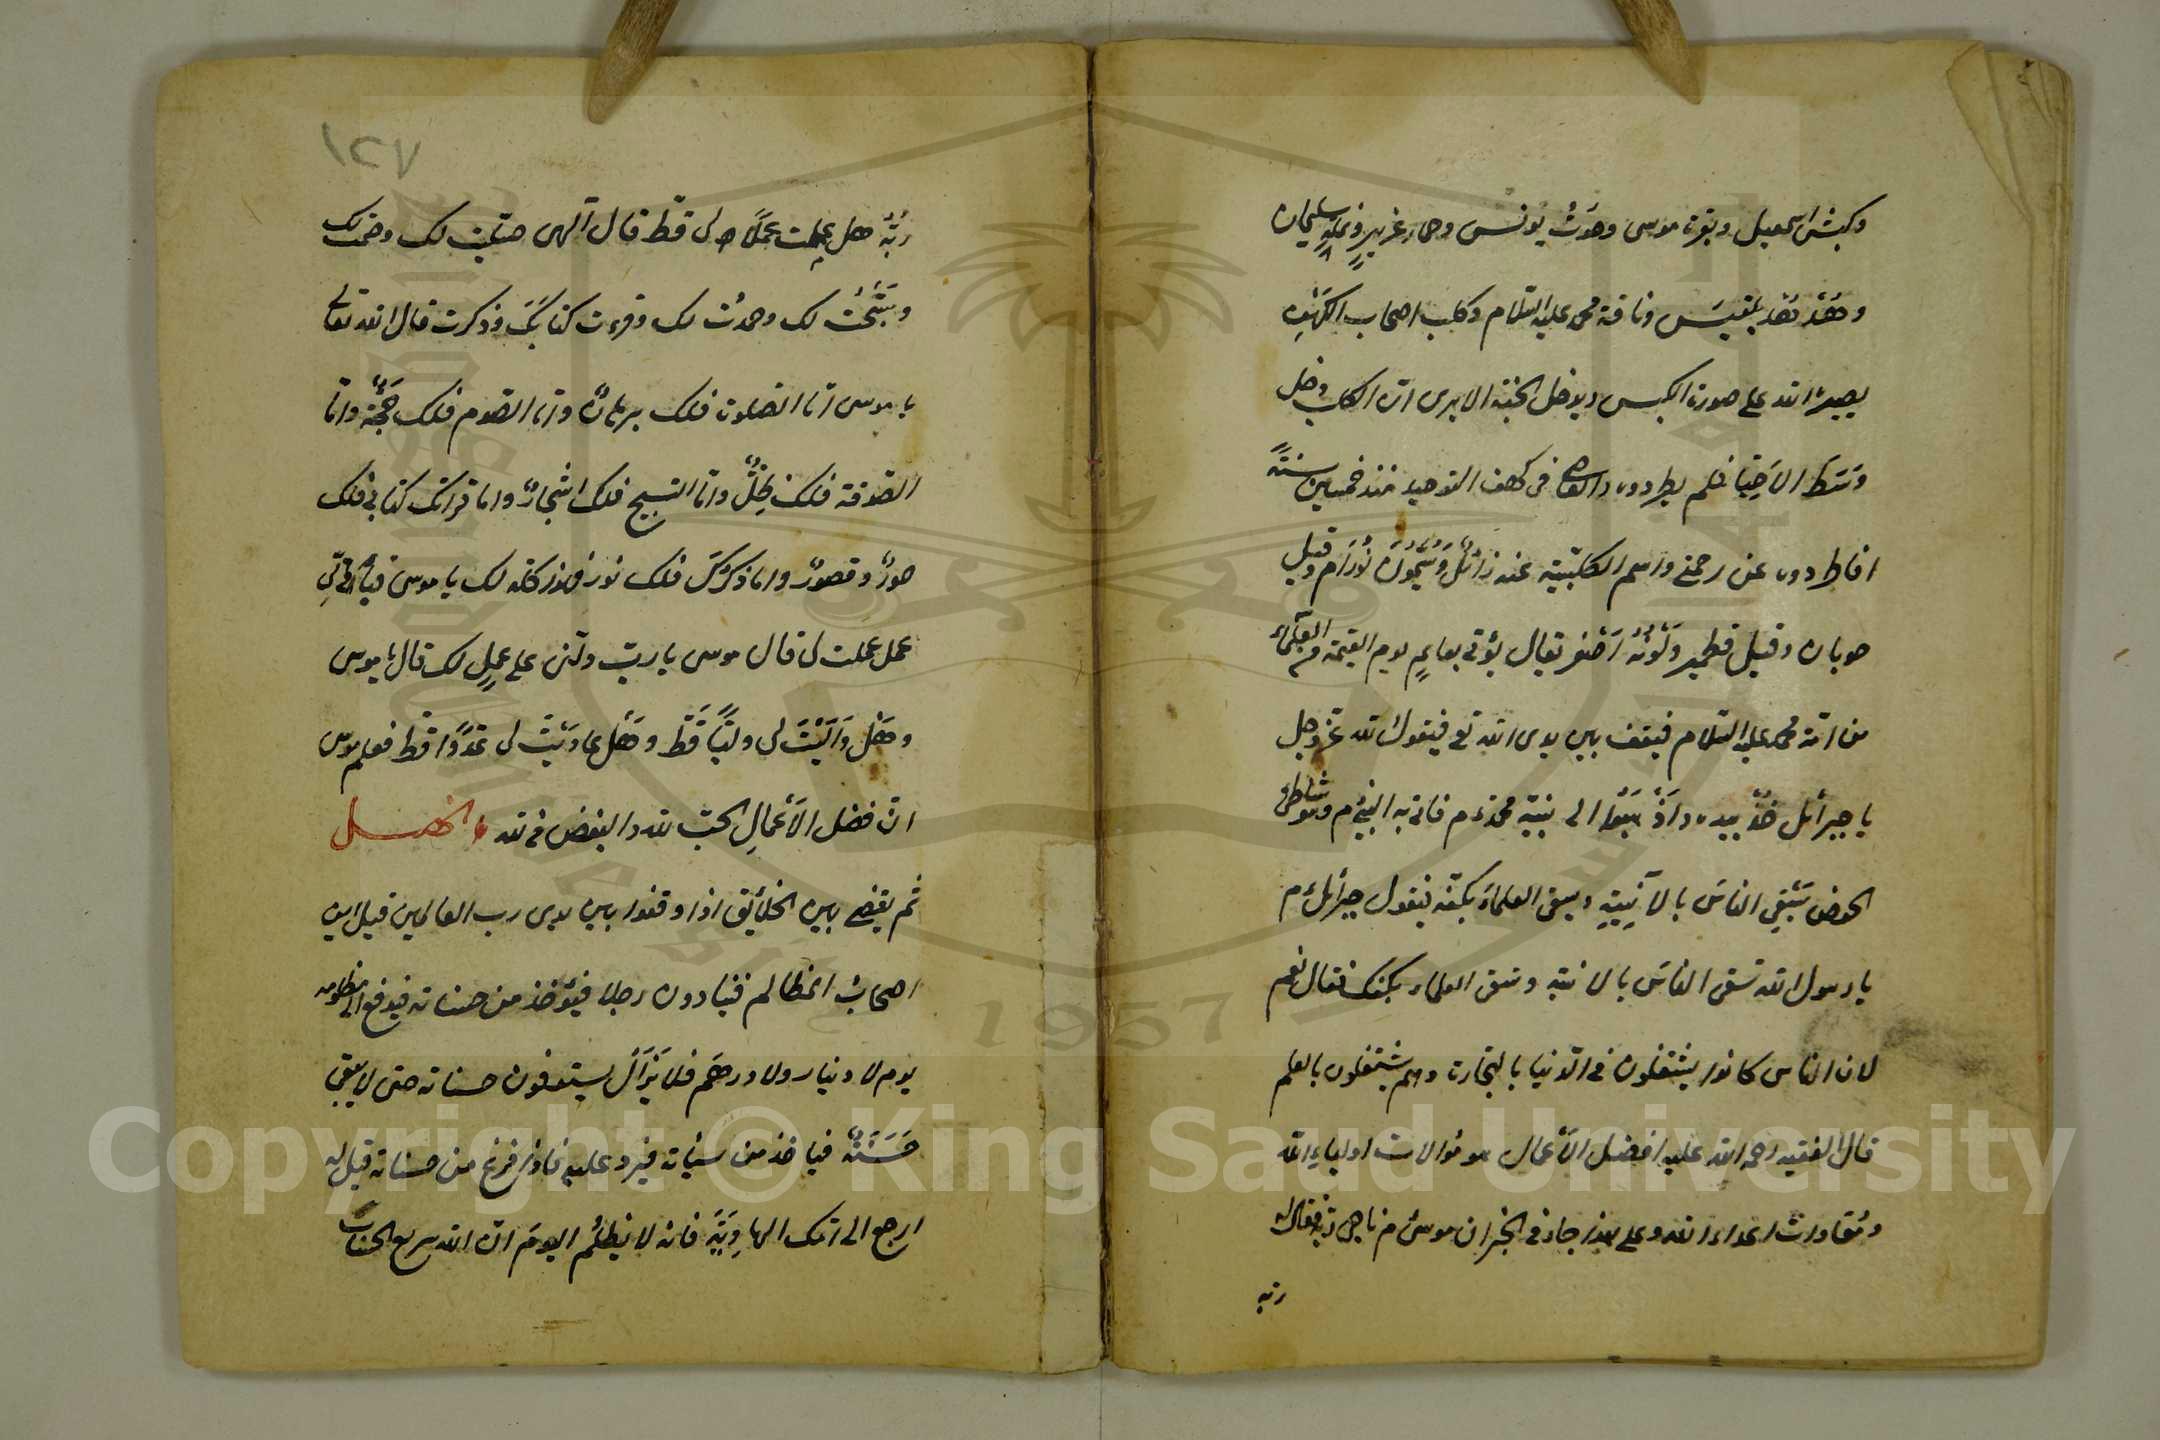 وكبش اسمعيل وبقرة موسى وحوت يونس وحمار عزير ونملة سليمان
وهدهد بلقيس وناقة محمد عليه السلام وكلب اصحاب الكهف
يصيره الله على صورة الكبس ويدخل الجنة الا يرى ان الكلب دخل
وسط الاحبا فلم يطردوه والعاصى فى كهف التوحيد منذ خمسين سنة
افاطرده عن رحمتى واسم الكلبية عند
وقيل قطمير ولونه اصفر يقال يؤتى بعالم يوم القيمة من العلماء
من امة محمد عليه السلام فيقف بين يدى الله تعالى فيقول الله عز وجل
يا جبرائل خذ بيده واذهبوا الى نبيه محمد م فاتى به النبى م وهو على شاطئ
الحوض يسقى الناس بالآنية ويسقى العلماء بكفه فيقول جبرائل م
يا رسول الله تسقى الناس بالانية وتسقى العلماء بكفك فقال نعم
لان الناس كانوا يشتغلون فى الدنيا بالتجارة وهم يشتغلون بالعلم
قال الفقيه رحمه الله عليه افضل الاعمال موالات اولياء الله
ومعادات اعداء الله وعلى هذا جاء فى الخبر ان موسى م ناجى ربه فقال له
ربه
١٢٧
ربه هل عملت عملا لى قط قال الهى صليت لك وصمت لك
وسبحت لك وحمدت لك وقرءت كتابك وذكرت قال الله تعالى
يا موسى اما الصلوة فلك برهان واما الصوم فلك جنة واما
الصدقة فلك ظل واما التسبيح فلك اشجار واما قراتك كتابى فلك
حور وقصور واما ذكرك فلك نور فهذر كله لك يا موسى فباى
عمل عملت لى قال موسى يا رب دلنى على عمل لك قال يا موسى
وهل واليت لى وليا قط وهل عاديت لى عدوا قط فعلم موسى
ان افضل الاعمال الحب لله والبغض فى لله الفصل
ثم يقضى بين الخلائق اذا وقفوا بين يدى رب العالمين قيل اين
اصحاب المظالم فينادون رجلا فيؤخذ من حسناته فيدفع الى مظلومه
يوم لا دينار ولا درهم فلا يزال يستوفون حسناته حتى لا يبقى
حسنة فياخذ من سيئاته فيرد عليه فاذا فرغ من حسناته قيل له
ارجع الى امك الهاوية فانه لا ظلم اليوم ان الله سريع الحساب